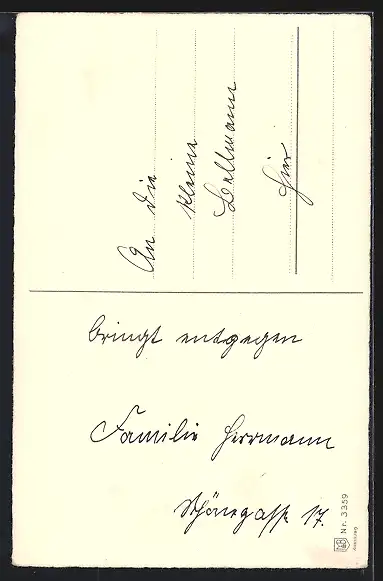 An die
kleine
Bellmann
Hier
bringt entgegen
Familie Herrmann
Schönegasse 17.
Nr. 3359